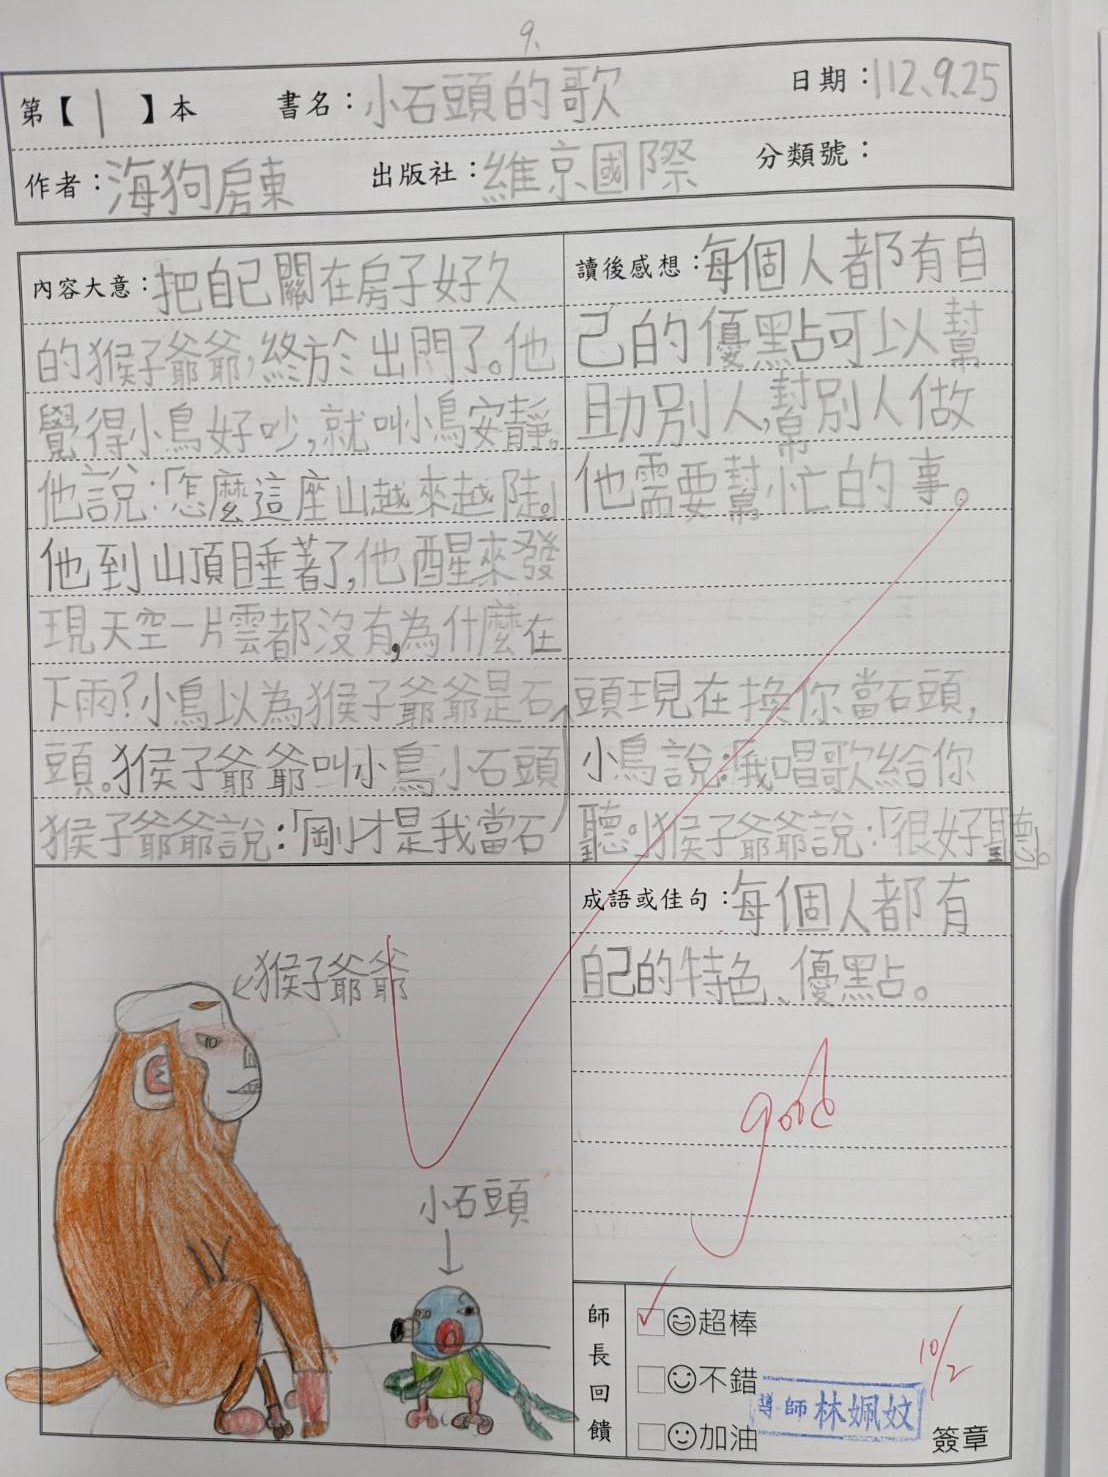 9.
第【1】本 書名：小石頭的歌 日期：112.9.25
作者：海狗房東 出版社：維京國際 分類號：
內容大意：把自己關在房子好久
的猴子爺爺，終於出門了。他
覺得小鳥好吵，就叫小鳥安靜。
他說：「怎麼這座山越來越陡。」
他到山頂睡著了，他醒來發
現天空一片雲都沒有，為什麼在
下雨？小鳥以為猴子爺爺是石
頭。猴子爺爺叫小鳥小石頭
猴子爺爺說：「剛才是我當石
頭現在換你當石頭，
小鳥說：「我唱歌給你
聽。」猴子爺爺說：「很好聽」。
讀後感想：每個人都有自
己的優點可以幫
助別人，幫別人做
他需要幫忙的事。
成語或佳句：每個人都有
自己的特色、優點。
good
猴子爺爺
小石頭
師長回饋
超棒
不錯
加油
導師 林姵妏
10/2
簽章